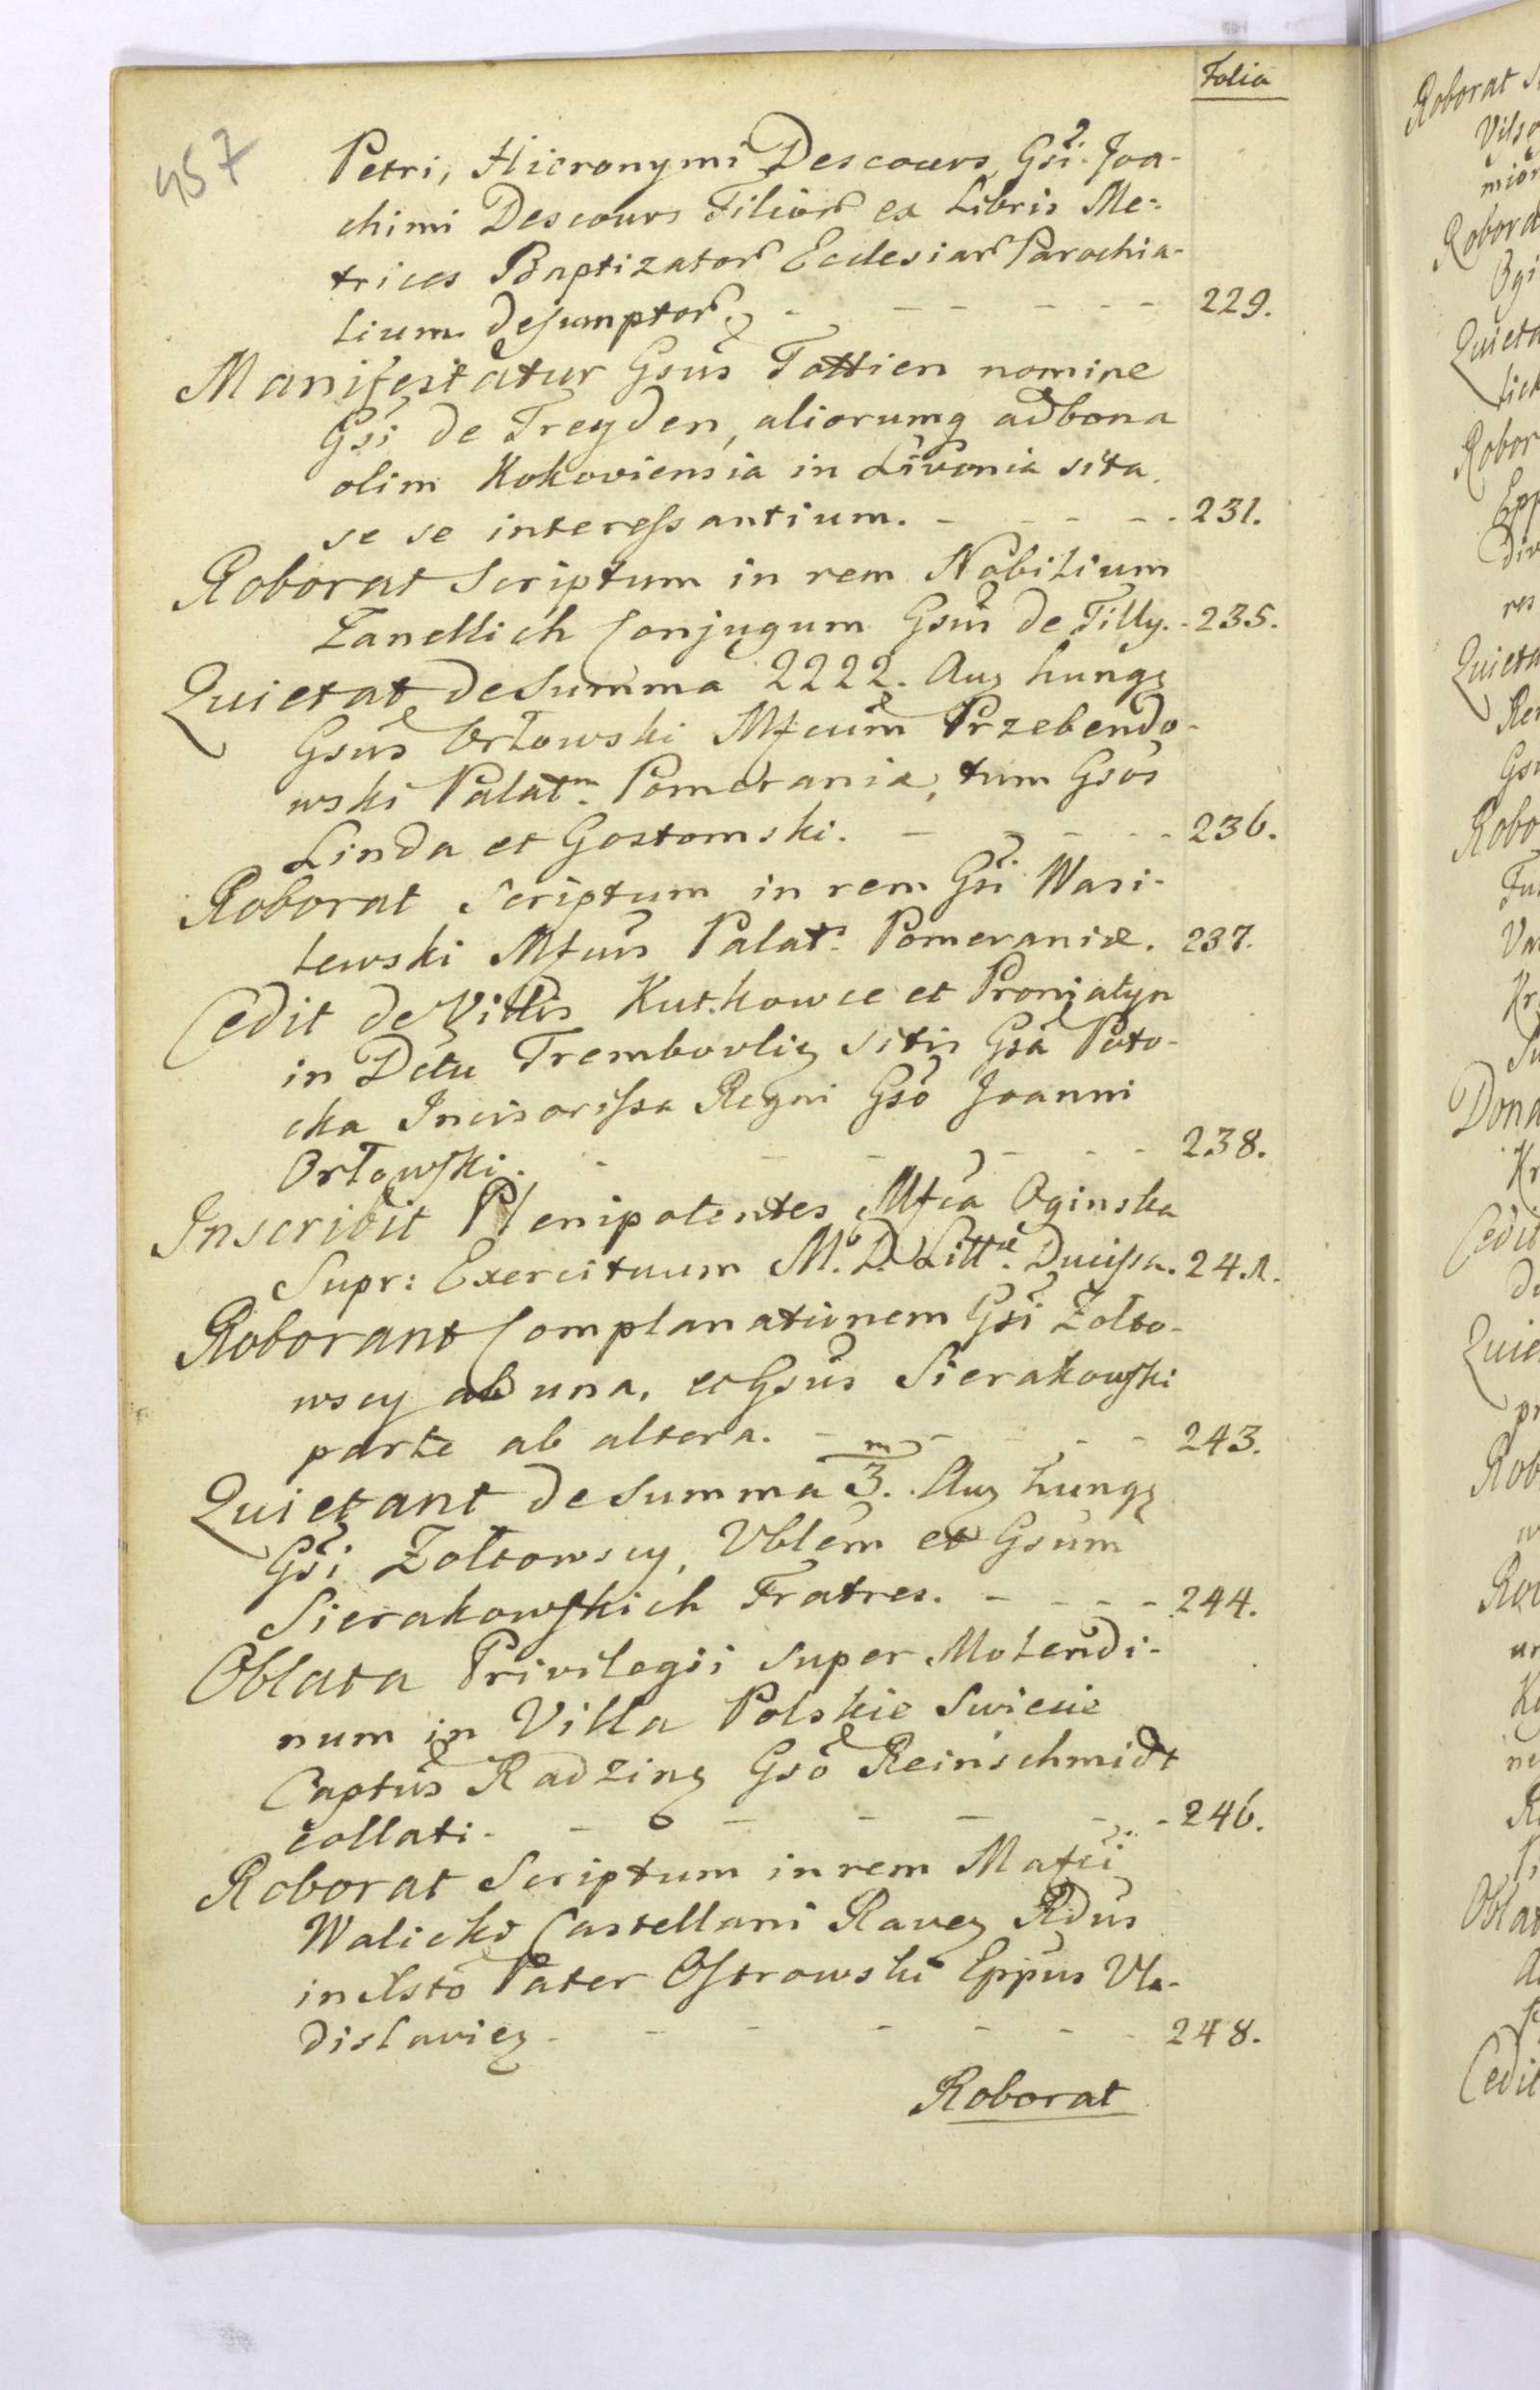 Folia
957
Petri, Hieronymi Descours Gsi Joa-
chimi Descours Filior ex Libris Me-
trices Baptizator Ecclesiar Parochia-
lium desumptor - - - - - - 229.
Manifestatur Gsus Tottien nomine
Gsi de Treyden, aliorumq ad bona
olim Kokoviensia in Livonia sita
se se interessantium. - - - - 231.
Roborat Scriptum in rem Nobilium
Zanellich Conjugum Gsus de Tilly. - 235.
Quietat de Summa 2222. Aur hung
Gsus Orłowski Mfcum Przebendo-
wski Palatm. Pomerania, tum Gsos
Linda et Gostomski. - - - - 236.
Roborat Scriptum in rem Gsi Wasi-
lewski Mfcus Palats. Pomeraniæ. 237.
Cedit de Villis Kutkowce et Proniatyn
in Dctu Trembovlię sitis Gsa Poto-
cka Incisorissa Regni Gso Joanni
Orłowski. - - - - - - 238.
Inscribit Plenipotentes Mfca Oginska
Supr: Exercituum M. D. Litt. Ducissa. 241.
Roborant Complanationem Gsi Zołto-
wscy ab una, et Gsus Sierakowski
parte ab altera. - - - - 243.
m
Quietant de Summa 3. Aur hung
Gsi Zołtowscy, Vblem et Gsum
Sierakowskich Fratres. - - - - 244.
Oblata Privilegii super Molendi-
num in Villa Polskie Swiecie
Captus Radzing Gso Reinschmidt
collati. - - - - - - 246.
Roborat Scriptum in rem Mafci
Walicki Castellani Raveń Rdus
in Xsto Pater Ostrowski Eppus Vla-
dislavień - - - - - - 248.
Roborat